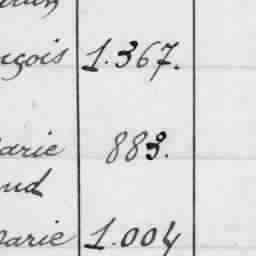 nçois 1.367.
arie 883.
ud
arie 1.004